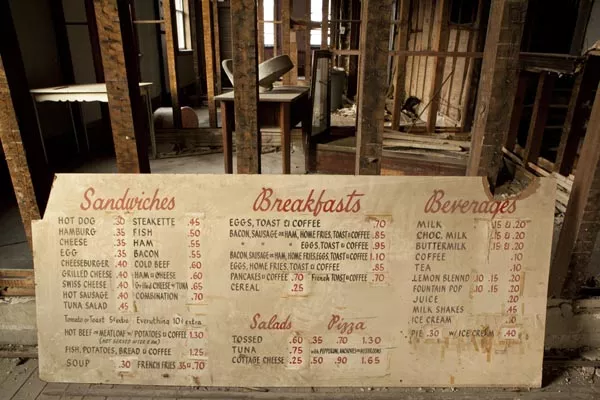 Sandwiches
HOT DOG .30 STEAKETTE .45
HAMBURG .35 FISH .50
CHEESE .35 HAM .55
EGG .35 BACON .55
CHEESEBURGER .40 COLD BEEF .60
GRILLED CHEESE .40 HAM & CHEESE .65
SWISS CHEESE .40 GRILLED CHEESE & TUNA .65
HOT SAUSAGE .45 COMBINATION .70
TUNA SALAD .45
Tomato or Toast 5¢ extra Everything 10¢ extra
HOT BEEF OR MEATLOAF W/ POTATOES & COFFEE 1.30
(NOT SERVED AFTER 2 AM)
FISH, POTATOES, BREAD & COFFEE 1.25
SOUP .30 FRENCH FRIES .35 & .70
Breakfasts
EGGS, TOAST & COFFEE .70
BACON, SAUSAGE OR HAM, HOME FRIES, TOAST & COFFEE .85
" " " EGGS, TOAST & COFFEE .95
BACON, SAUSAGE OR HAM, HOME FRIES, EGGS & COFFEE 1.10
EGGS, HOME FRIES, TOAST & COFFEE .85
PANCAKES & COFFEE .70 FRENCH TOAST & COFFEE .70
CEREAL .25
Salads
TOSSED .60
TUNA .75
COTTAGE CHEESE .25
Pizza
.35 .70 1.30
WITH PEPPERONI, ANCHOVIES OR MUSHROOMS
.50 .90 1.65
Beverages
MILK .15 & .20
CHOC. MILK .15 & .20
BUTTERMILK .15 & .20
COFFEE .10
TEA .10
LEMON BLEND .10 .15 .20
FOUNTAIN POP .10 .15 .20
JUICE .20
MILK SHAKES .45
ICE CREAM .20
PIE .30 W/ ICE CREAM .40